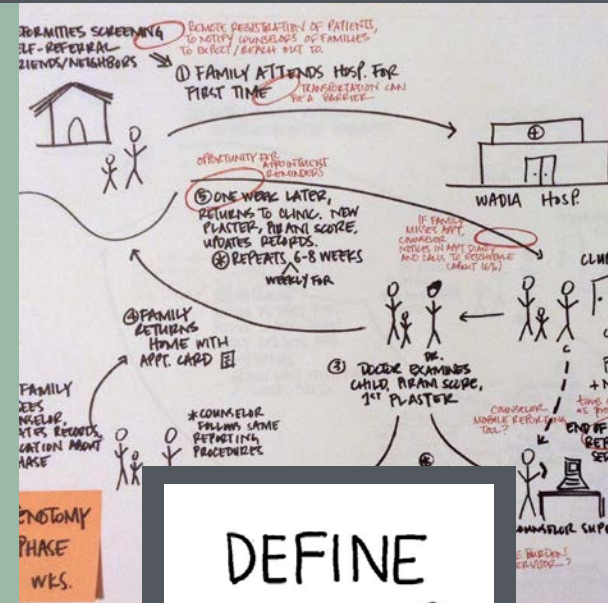 FORMITIES SCREENING
ELF-REFERRAL
RIENDS/NEIGHBORS
REMOTE REGISTRATION OF PATIENTS,
TO NOTIFY COUNSELORS OF FAMILIES
TO EXPECT/REACH OUT TO.
① FAMILY ATTENDS HOSP. FOR
FIRST TIME
TRANSPORTATION CAN
BE A BARRIER
WADIA HOSP.
OPPORTUNITY FOR
APPOINTMENT
REMINDERS
⑤ ONE WEEK LATER,
RETURNS TO CLINIC. NEW
PLASTER, PIRANI SCORE,
UPDATES RECORDS.
* REPEATS 6-8 WEEKS
WEEKLY FOR
IF FAMILY
MISSES APPT,
COUNSELOR
NOTICES IN APPT DIARY
AND CALLS TO RESCHEDULE
(ABOUT 16%)
CLUB
④ FAMILY
RETURNS
HOME WITH
APPT. CARD
DR.
③ DOCTOR EXAMINES
CHILD, PIRANI SCORE,
1ST PLASTER
FAMILY
SEES
NSELOR,
ATES RECORDS,
CATION ABOUT
HASE
* COUNSELOR
FOLLOWS SAME
REPORTING
PROCEDURES
COUNSELOR
MOBILE REPORTING
TOOL?
C
+ N
time
as
END OF
REP
SER
ENOTOMY
PHASE
WKS.
OUNSELOR SUPE
E BURDEN
ERVISOR...?
DEFINE